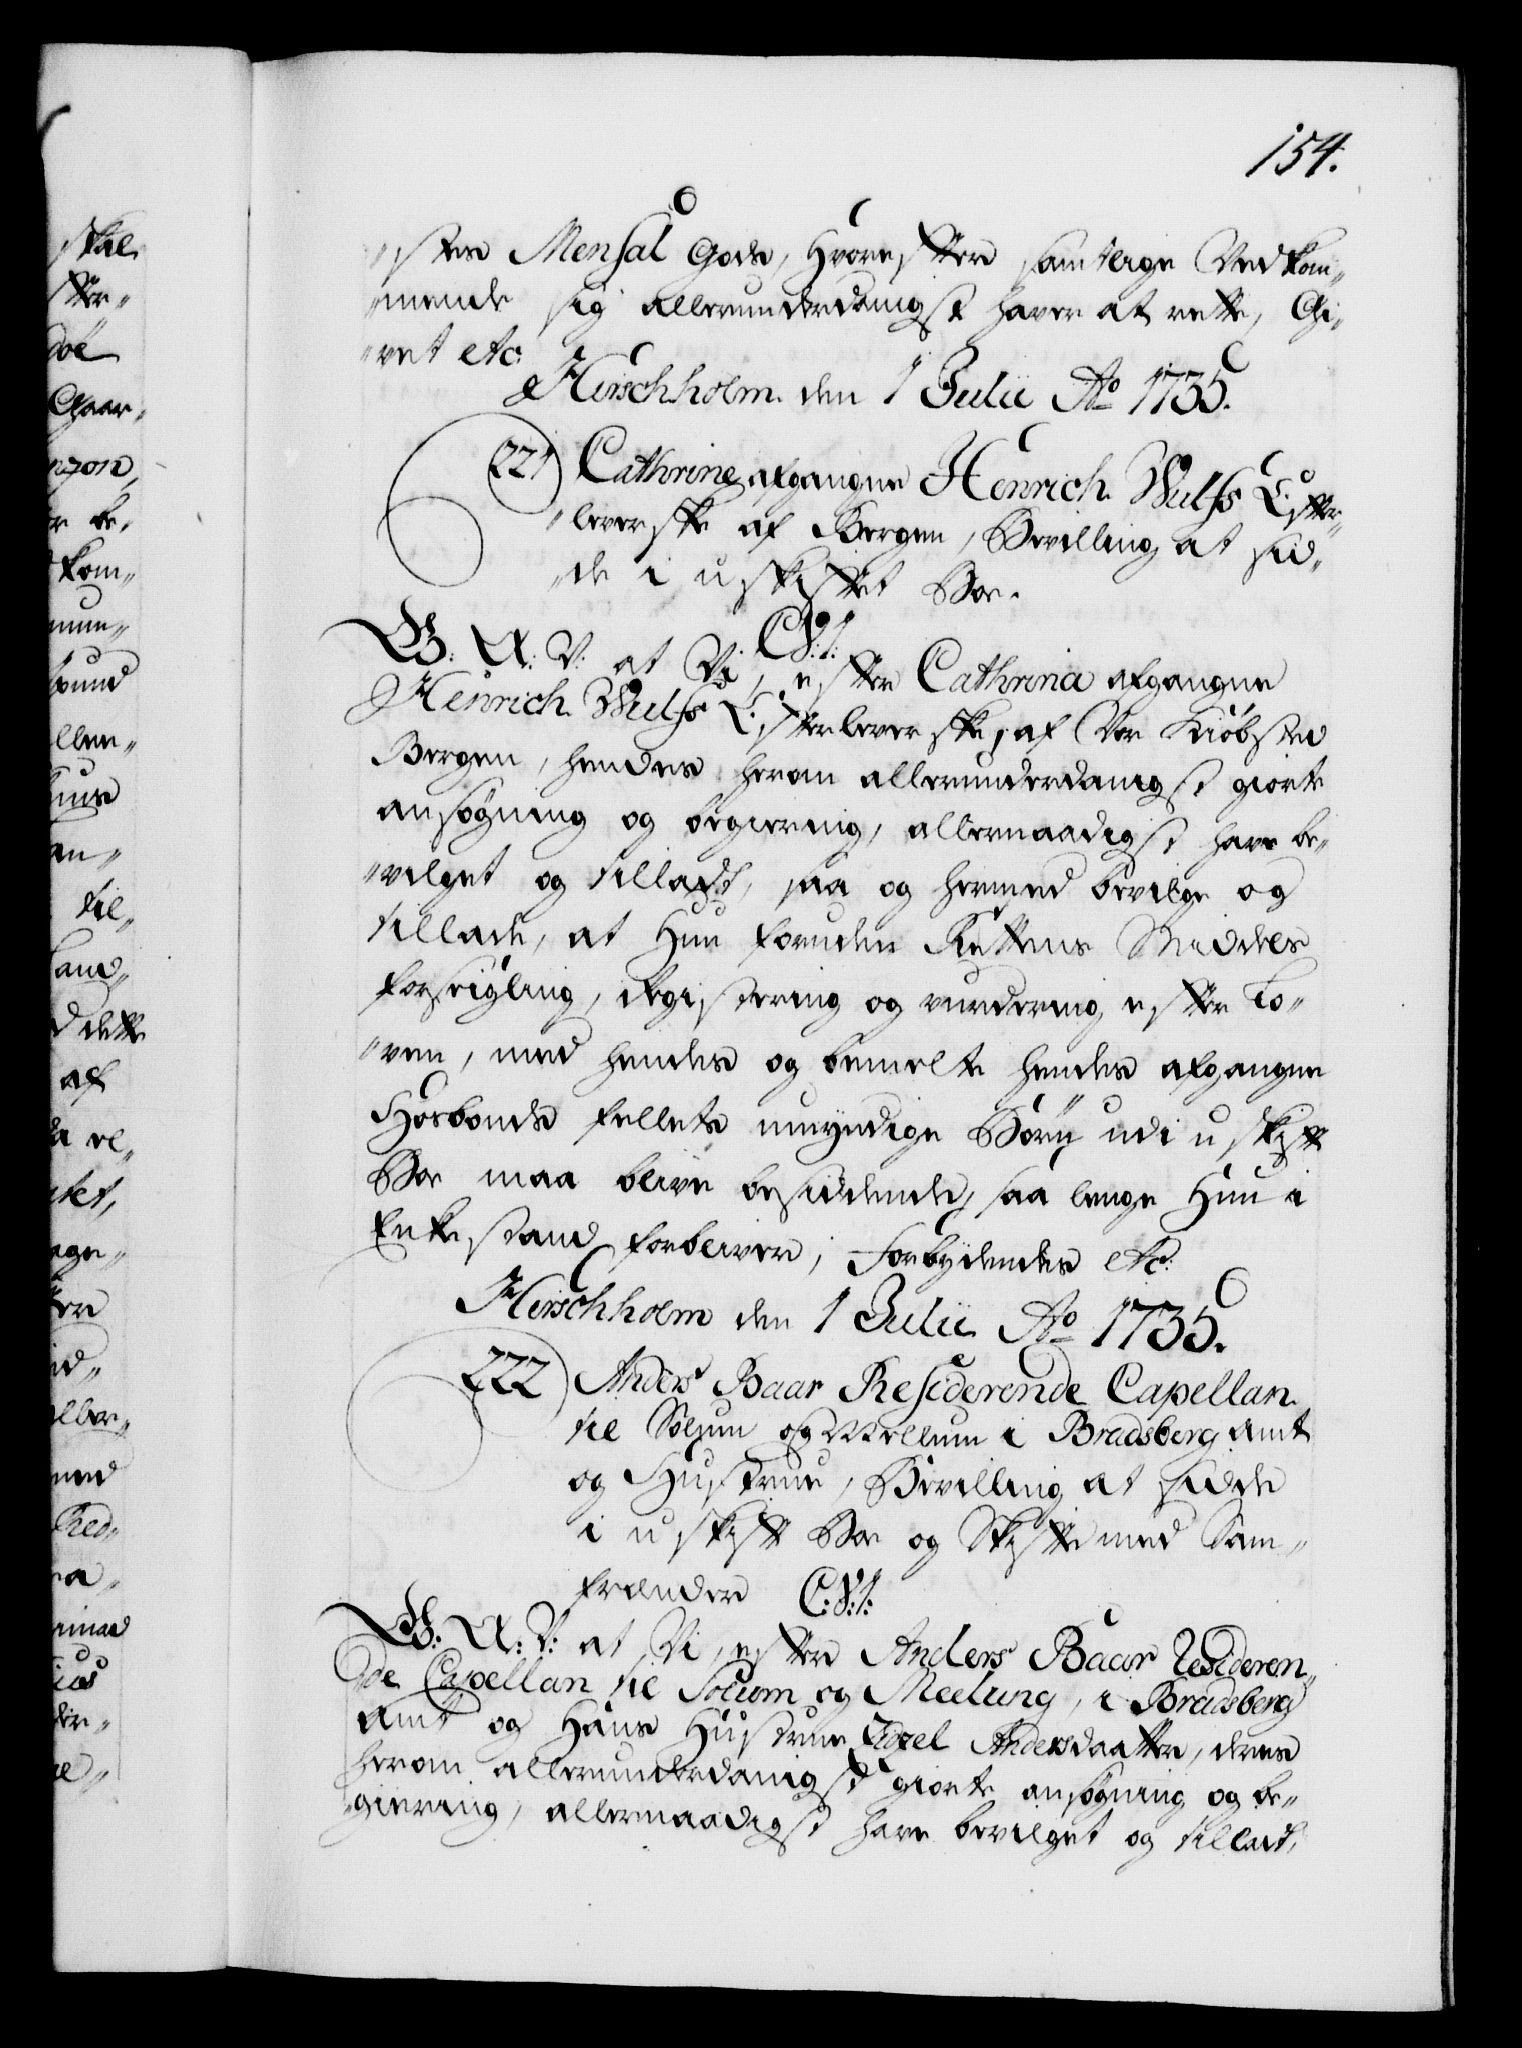 154.
"stes Mensal Gods, Hvorefter samtlige Vedkom"
"mende sig allerunderdanigst haver at rette, Gi"
"vet etc:
Hirschholm den 1 Julii Ao 1735.
221 Cathrine afgangne Henrich Wulfs Efter"
"leverske af Bergen, Bevilling at sid"
"de i uskiftet Boe.
C:V:I:
G: A: V: at Vi, efter Cathrina afgangne
Henrich Wulfs Efterleverske, af Vor Kiöbsted
Bergen, hendes herom allerunderdanigst giorte
ansøgning og begiering, allernaadigst have be"
"vilget og tilladt, saa og hermed bevilge og
tillade, at Hun foruden Rettens Middels
forseigling, Registering og vurdering efter Lo"
"ven, med hendes og bemelte hendes afgangne
Hosbonds fellets umyndige Børn udi uskift
Boe maa blive besiddende, saa lenge Hun i
Enkestand forbliver; Forbydendes etc:
Hirschholm den 1 Julii Ao 1735.
222 Anders Baar Residerende Capellan
til Solum og Mellum i Bradsberg Amt
og Hustrue, Bevilling at sidde
i uskift Boe og Skifte med Sam"
frænder C:V:I:
G: A: V: at Vi, efter Anders Baar Resideren"
de Capellan til Solum og Meelung, i Bradsberg
Amt og Hans Hustrue Zidzel Andersdaatter, deres
herom allerunderdanigst giorte ansøgning og be"
"giering, allernaadigst have bevilget og tilladt,